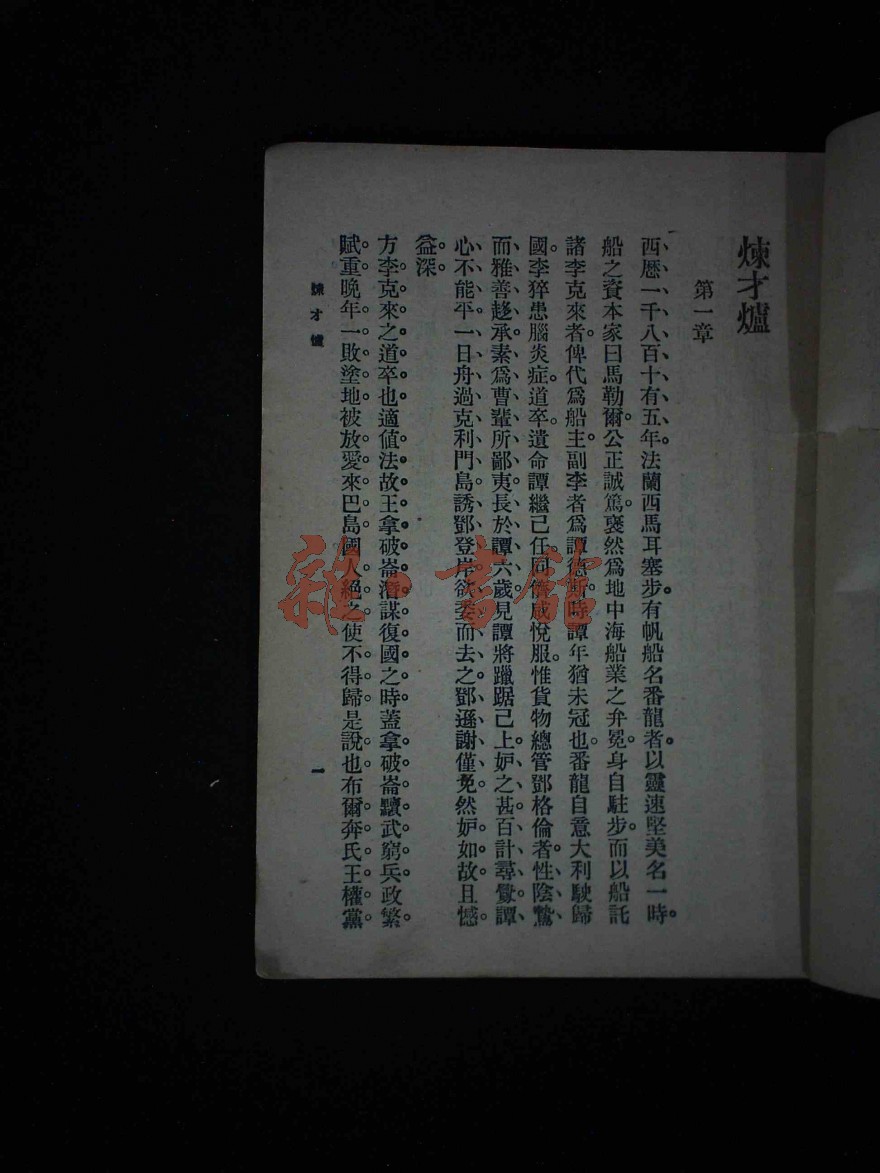 煉才爐
第一章
西歷一千八百十有五年。法蘭西馬耳塞步。有帆船名番龍者。以靈速堅美名一時。
船之資本家曰馬勒爾。公正誠篤。裒然爲地中海船業之弁冕。身自駐步。而以船託
諸李克來者。俾代爲船主。副李者爲譚德斯。時譚年猶未冠也。番龍自意大利駛歸
國。李猝患腦炎症。道卒。遺命譚繼己任。同儕咸悅服。惟貨物總管鄧格倫者。性陰鷙、
而雅善趍承、素爲曹輩所鄙夷、長於譚六歲、見譚將躐踞己上、妒之甚、百計尋釁、譚
心不能平、一日舟過克利門島、誘鄧登岸、欲委而去之、鄧遜謝僅免、然妒如故。且憾。
益深。
方李克來之道卒也。適值法故王拿破崙潛謀復國之時。蓋拿破崙黷武窮兵。政繁
賦重。晚年一敗塗地。被放愛來巴島。國人絕之。使不得歸。是說也。布爾奔氏王權黨
煉才爐
一
雜·書館